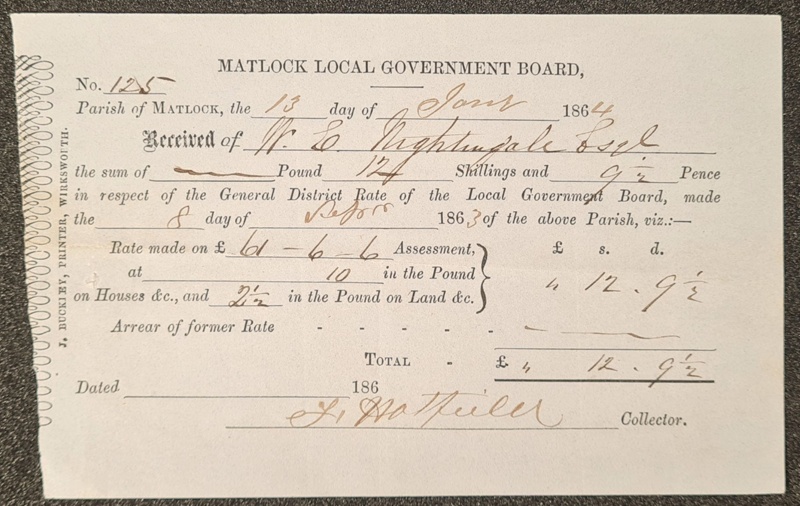 MATLOCK LOCAL GOVERNMENT BOARD,
No. 125
Parish of MATLOCK, the 13 day of Jany 1864
Received of W. E. Nightingale Esqr
the sum of — Pound 12 Shillings and 9½ Pence
in respect of the General District Rate of the Local Government Board, made
the 8 day of Septr 1863 of the above Parish, viz.:—
Rate made on £ 61 - 6 - 6 Assessment, £ s. d.
at 10 in the Pound
on Houses &c., and 2½ in the Pound on Land &c. " 12 . 9½
Arrear of former Rate - - - - - —
TOTAL - £ " 12 . 9½
Dated 186
Hatfield Collector.
J. BUCKLEY, PRINTER, WIRKSWORTH.